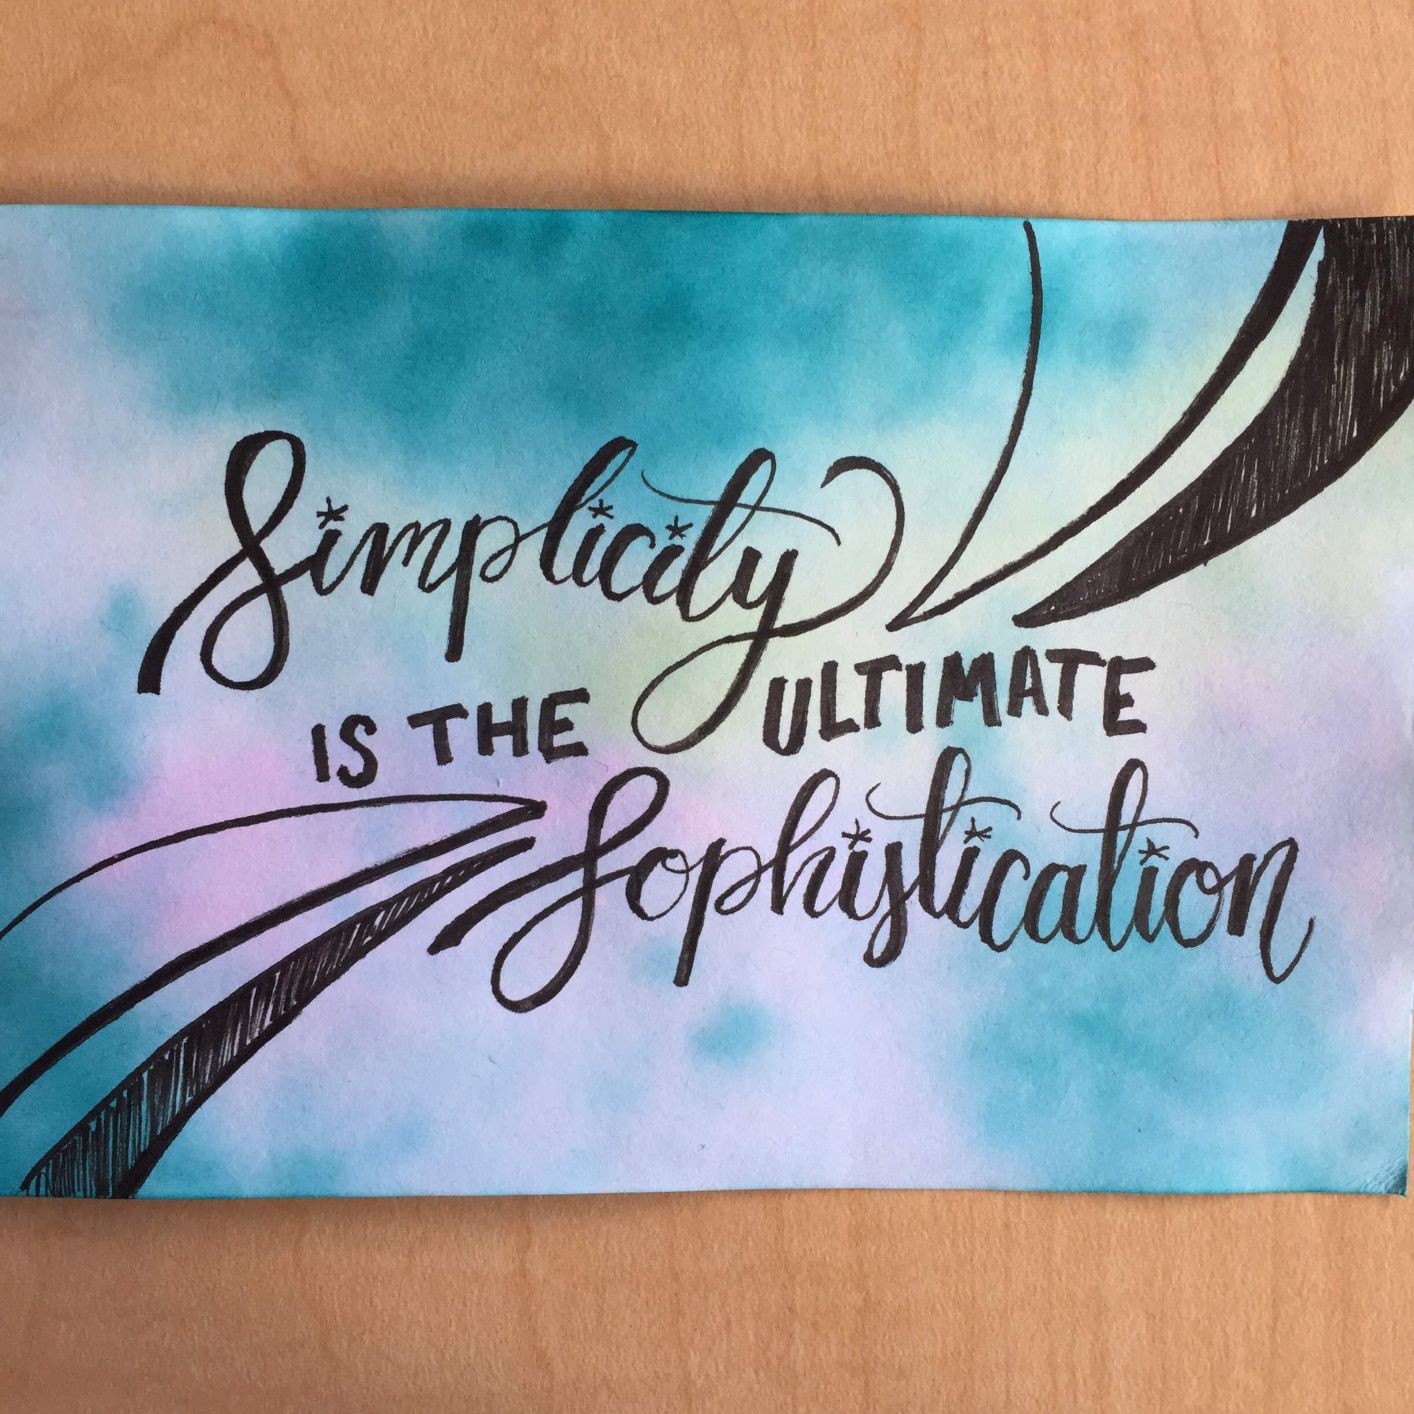 Simplicity
IS THE ULTIMATE
Sophistication